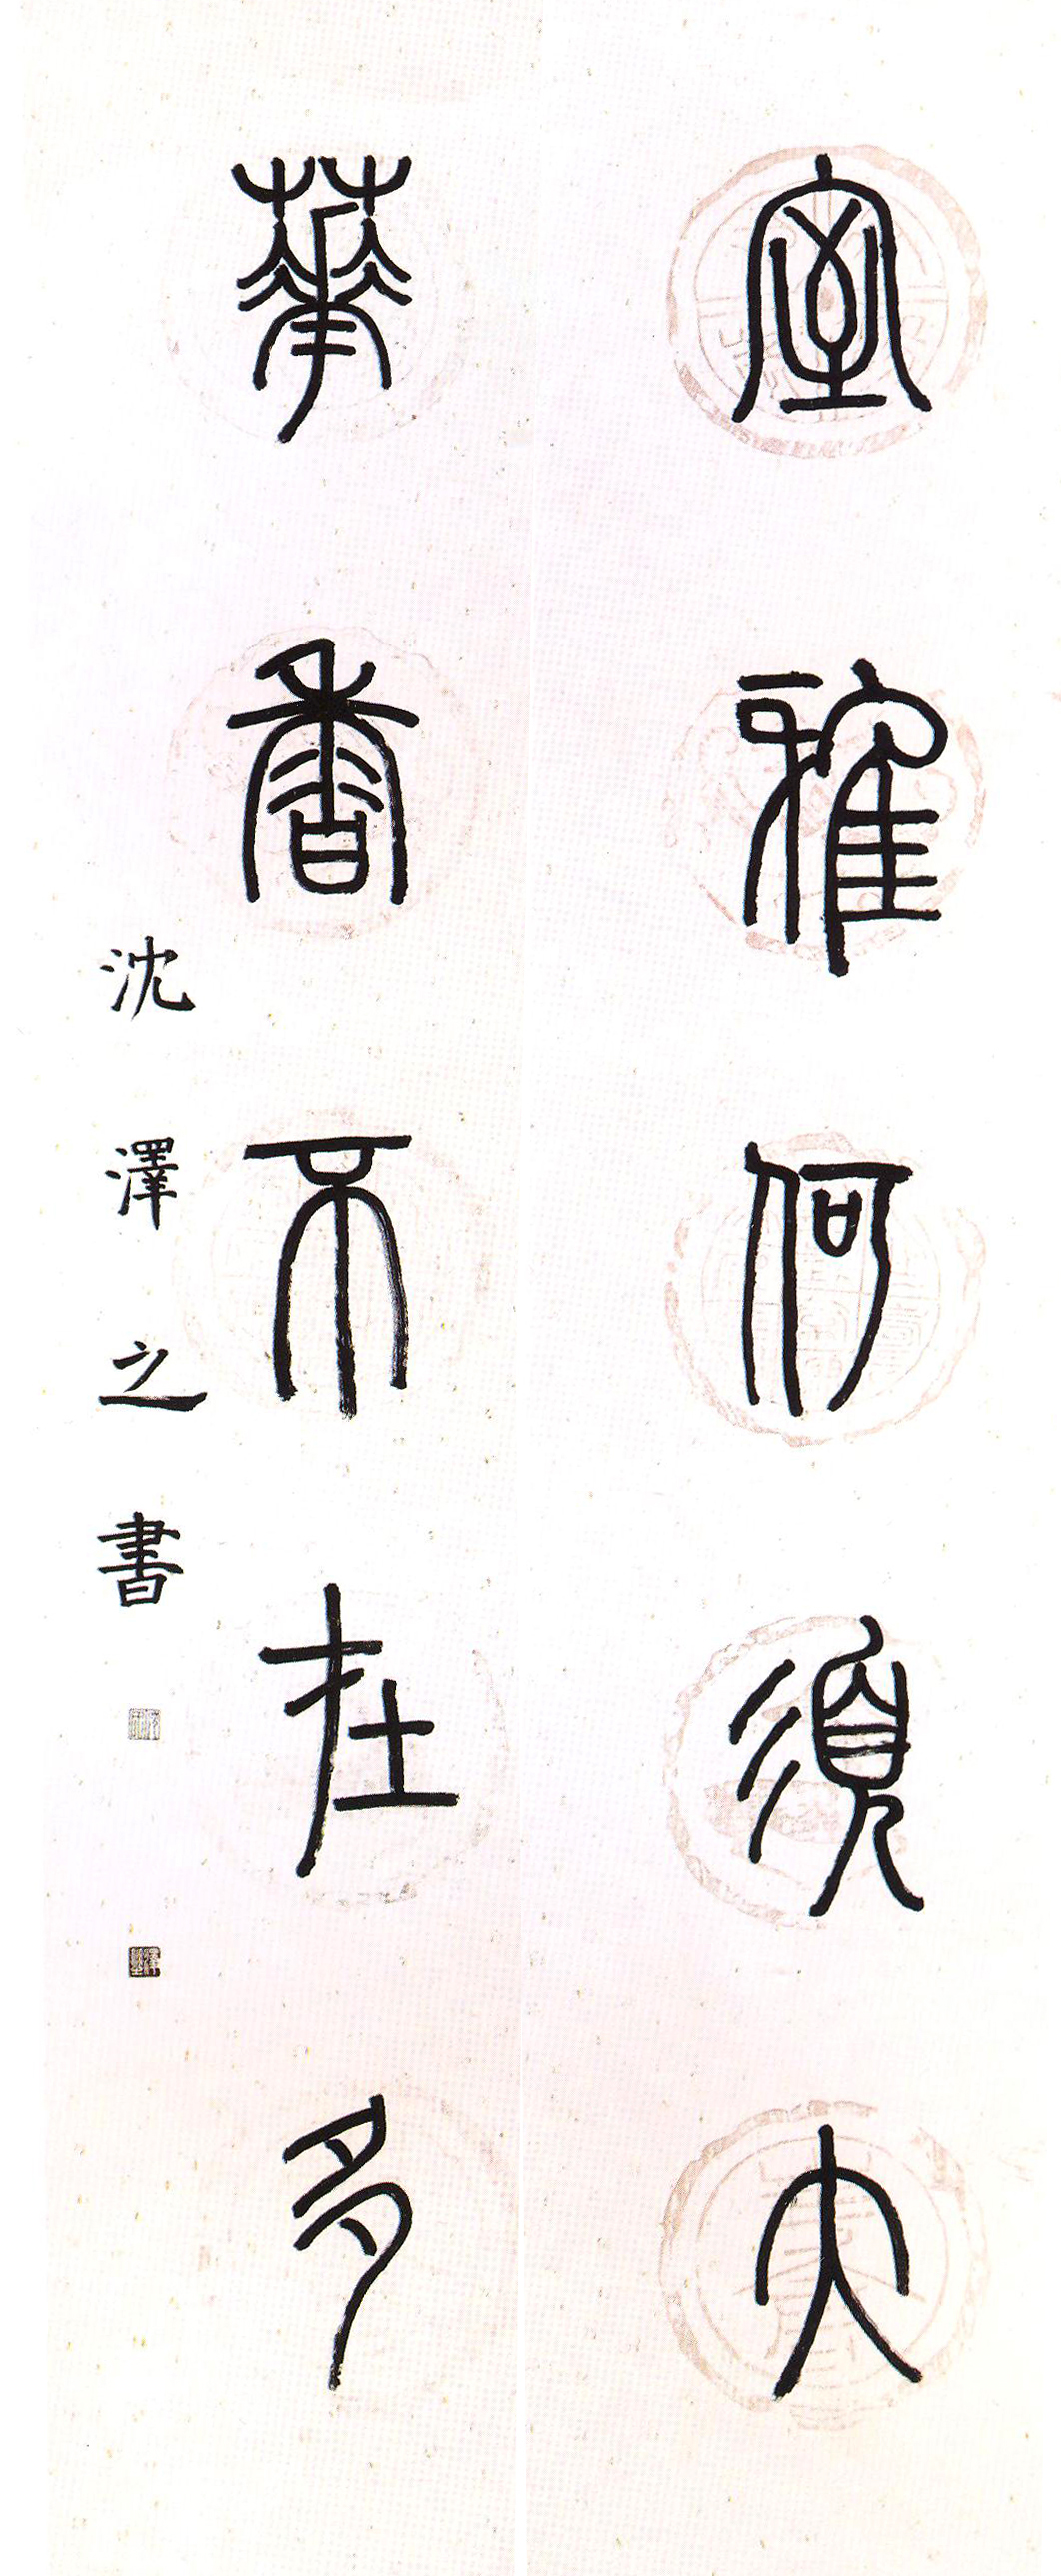 室雅何須大
華香不在多
沈澤之書